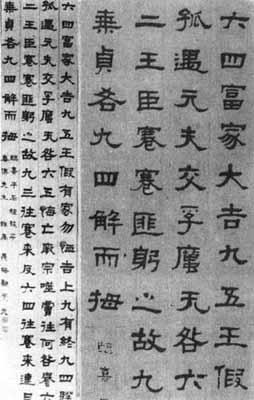 六四富家大吉九五王假
孤遇元夫交孚厲无咎六
二王臣蹇蹇匪躬之故九
乘貞吝九四解而拇
臨熹
六四富家大吉九五王假有家勿恤吉上九有終九四睽
孤遇元夫交孚厲无咎六五悔亡厥宗噬膚往何咎蹇六
二王臣蹇蹇匪躬之故九三往蹇來反六四往蹇來連
乘貞吝九四解而拇
臨熹平石經